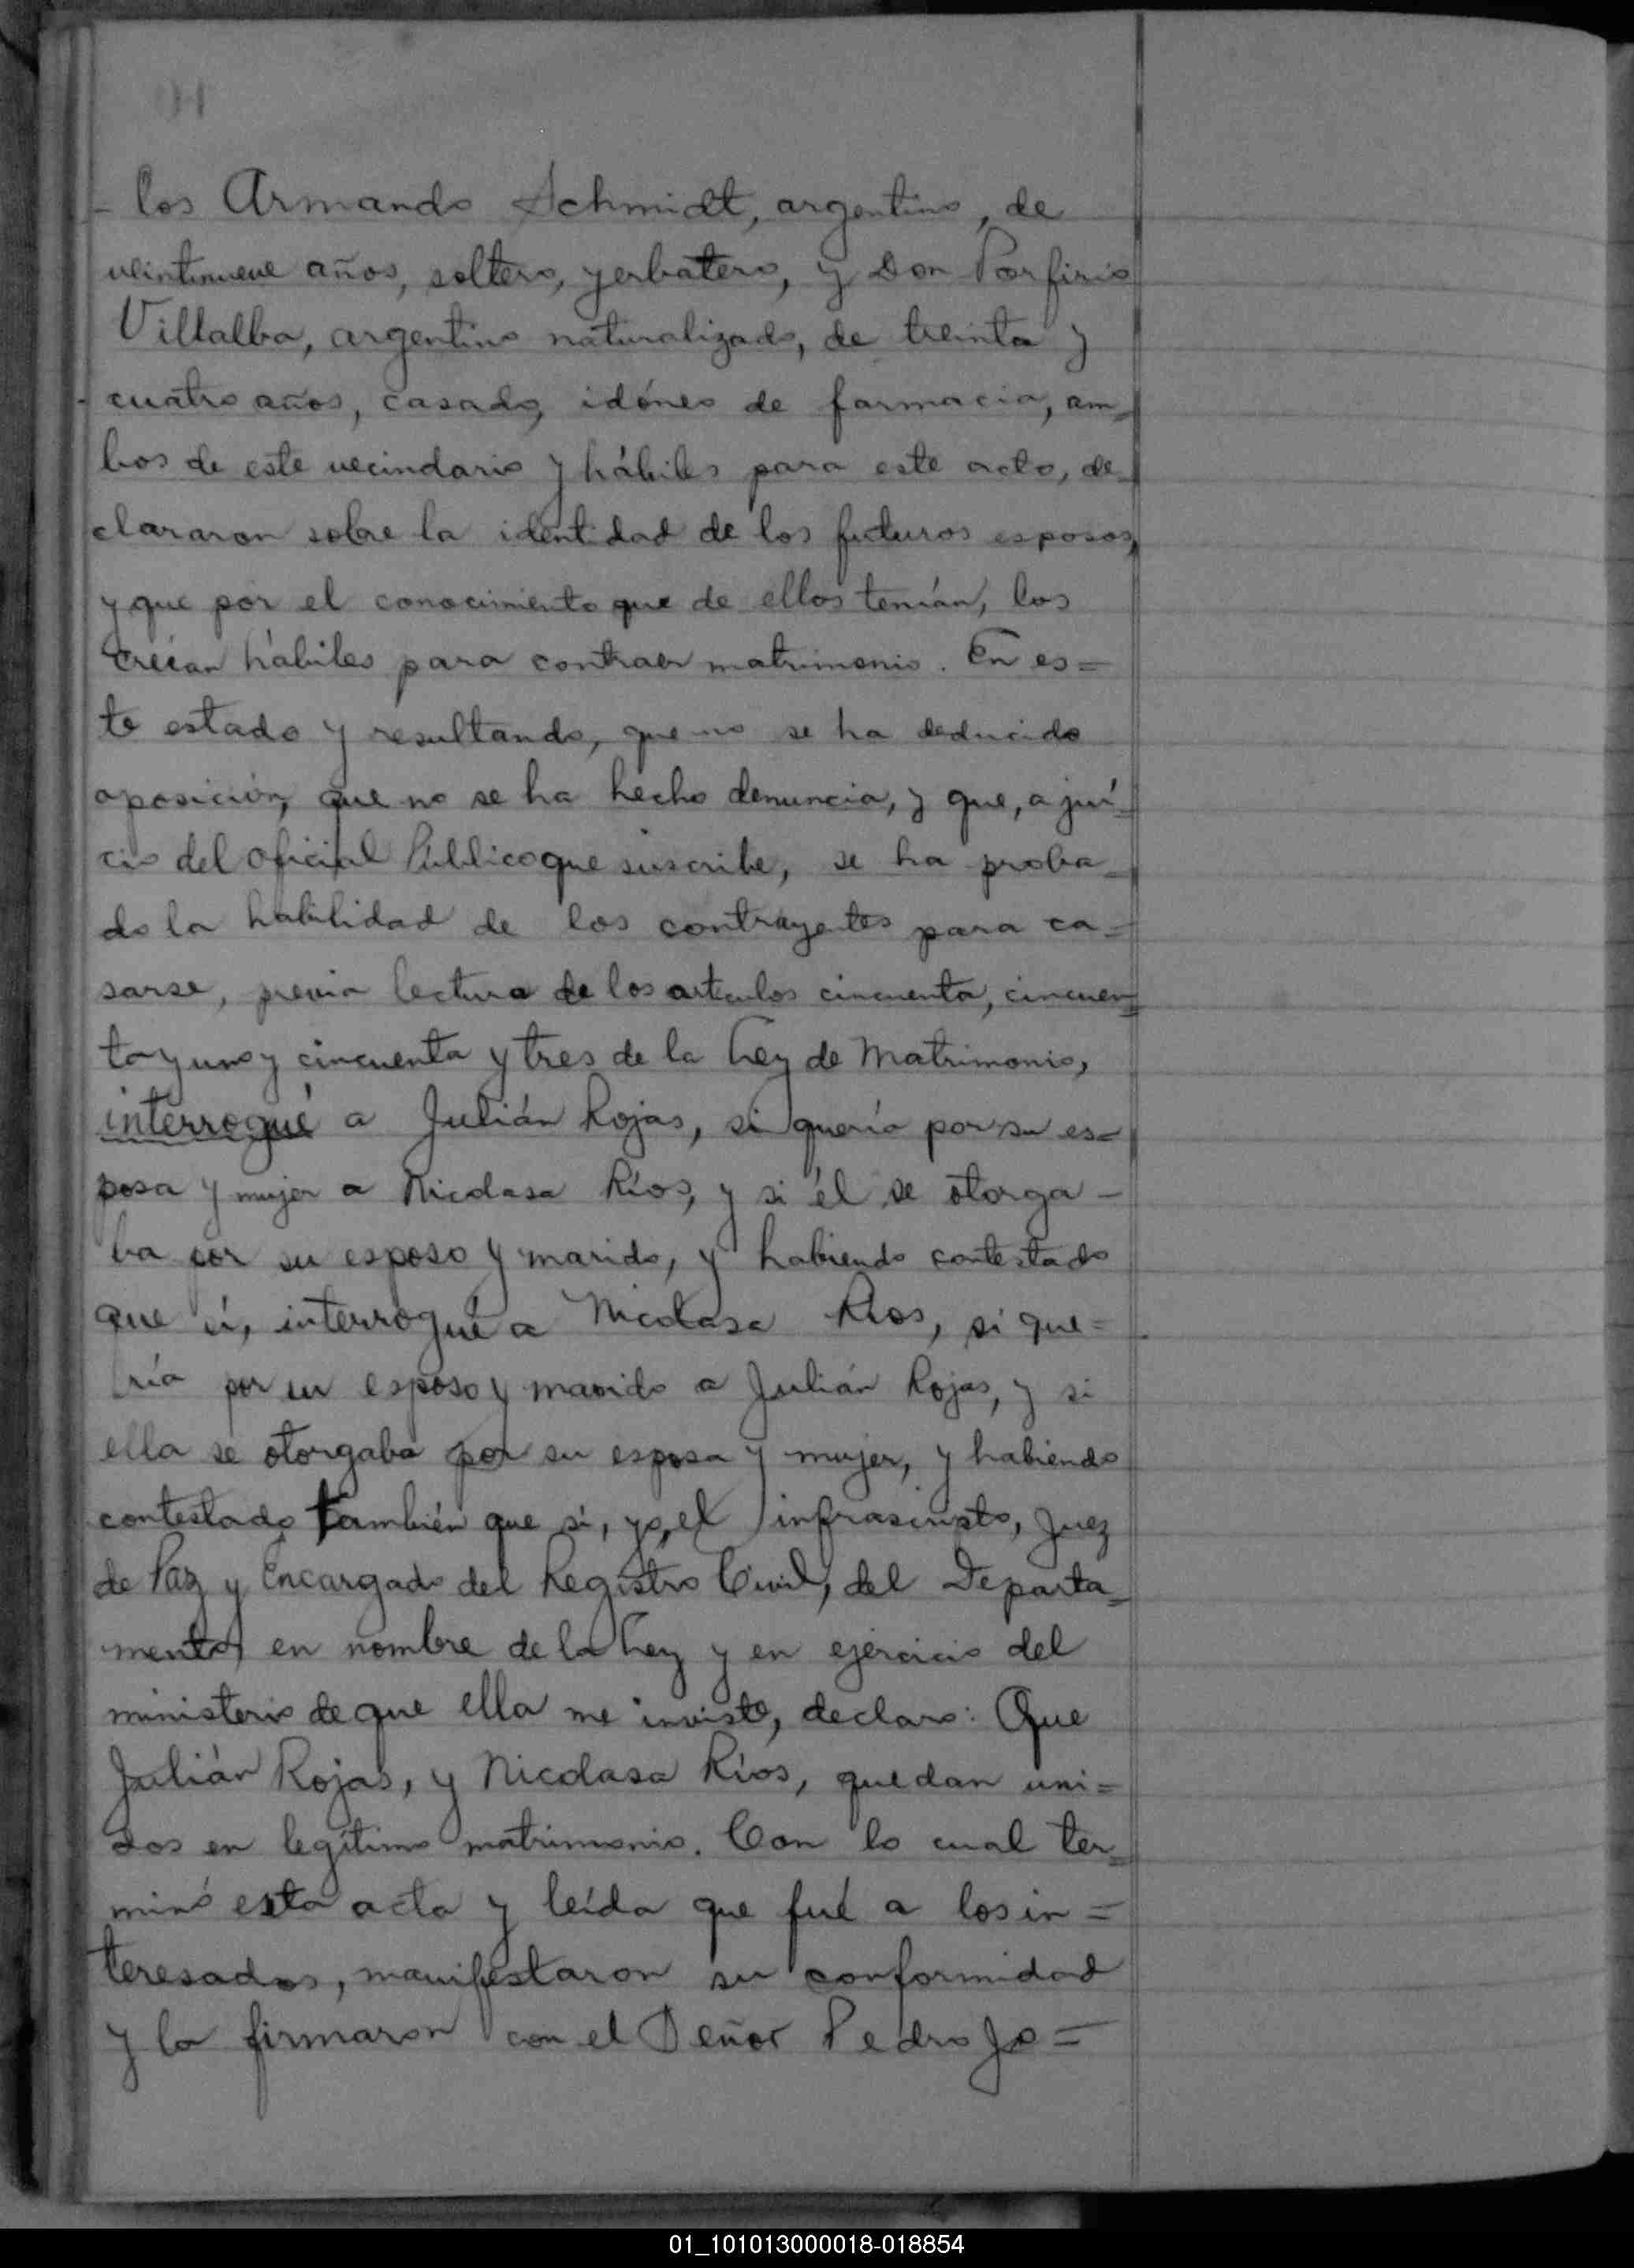 - los Armando Schmidt, argentino, de
veintinueve años, soltero, yerbatero, y Don Porfirio
Villalba, argentino naturalizado, de treinta y
cuatro años, casado, idóneo de farmacia, am=
bos de este vecindario y hábiles para este acto, de=
clararon sobre la identidad de los futuros esposos,
y que por el conocimiento que de ellos tenían, los
creían hábiles para contraer matrimonio. En es=
te estado y resultando, que no se ha deducido
oposición, que no se ha hecho denuncia, y que, a jui=
cio del Oficial Público que suscribe, se ha proba=
do la habilidad de los contrayentes para ca=
sarse, previa lectura de los artículos cincuenta, cincuen=
ta y uno y cincuenta y tres de la Ley de Matrimonio,
interrogué a Julián Rojas, si quería por su es=
posa y mujer a Nicolasa Ríos, y si él se otorga-
ba por su esposo y marido, y habiendo contestado
que sí, interrogué a Nicolasa Ríos, si que=
ría por su esposo y marido a Julián Rojas, y si
ella se otorgaba por su esposa y mujer, y habiendo
contestado también que sí, yo, el infrascripto, Juez
de Paz y Encargado del Registro Civil, del Departa=
mento, en nombre de la Ley y en ejercicio del
ministerio de que ella me inviste, declaro: Que
Julián Rojas, y Nicolasa Ríos, quedan uni=
dos en legítimo matrimonio. Con lo cual ter=
minó esta acta y leída que fué a los in=
teresados, manifestaron su conformidad
y la firmaron con el Señor Pedro Jo=
01_101013000018-018854